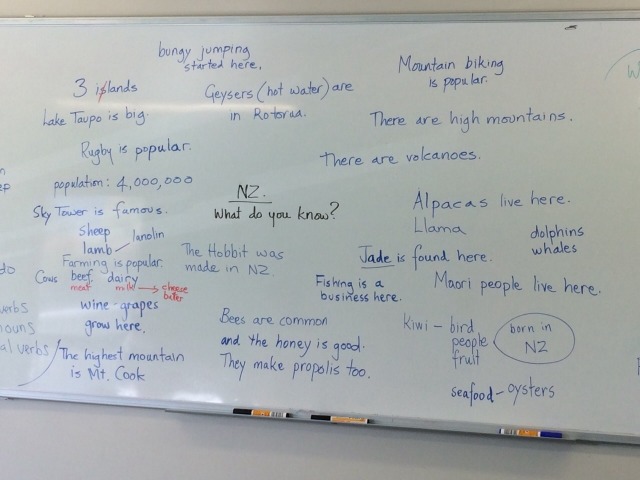 bungy jumping
started here.
Mountain biking
is popular.
3 islands
Geysers (hot water) are
in Rotorua.
Lake Taupo is big.
There are high mountains.
Rugby is popular.
There are volcanoes.
population: 4,000,000
NZ.
What do you know?
Sky Tower is famous.
Alpacas live here.
Llama
dolphins
whales
sheep
lamb - lanolin
Farming is popular.
Cows beef dairy
meat milk → cheese
butter
The Hobbit was
made in NZ.
Jade is found here.
Fishing is a
business here.
Maori people live here.
wine - grapes
grow here.
Bees are common
and the honey is good.
They make propolis too.
Kiwi - bird
people
fruit
born in
NZ
The highest mountain
is Mt. Cook
seafood - oysters
do
verbs
nouns
al verbs